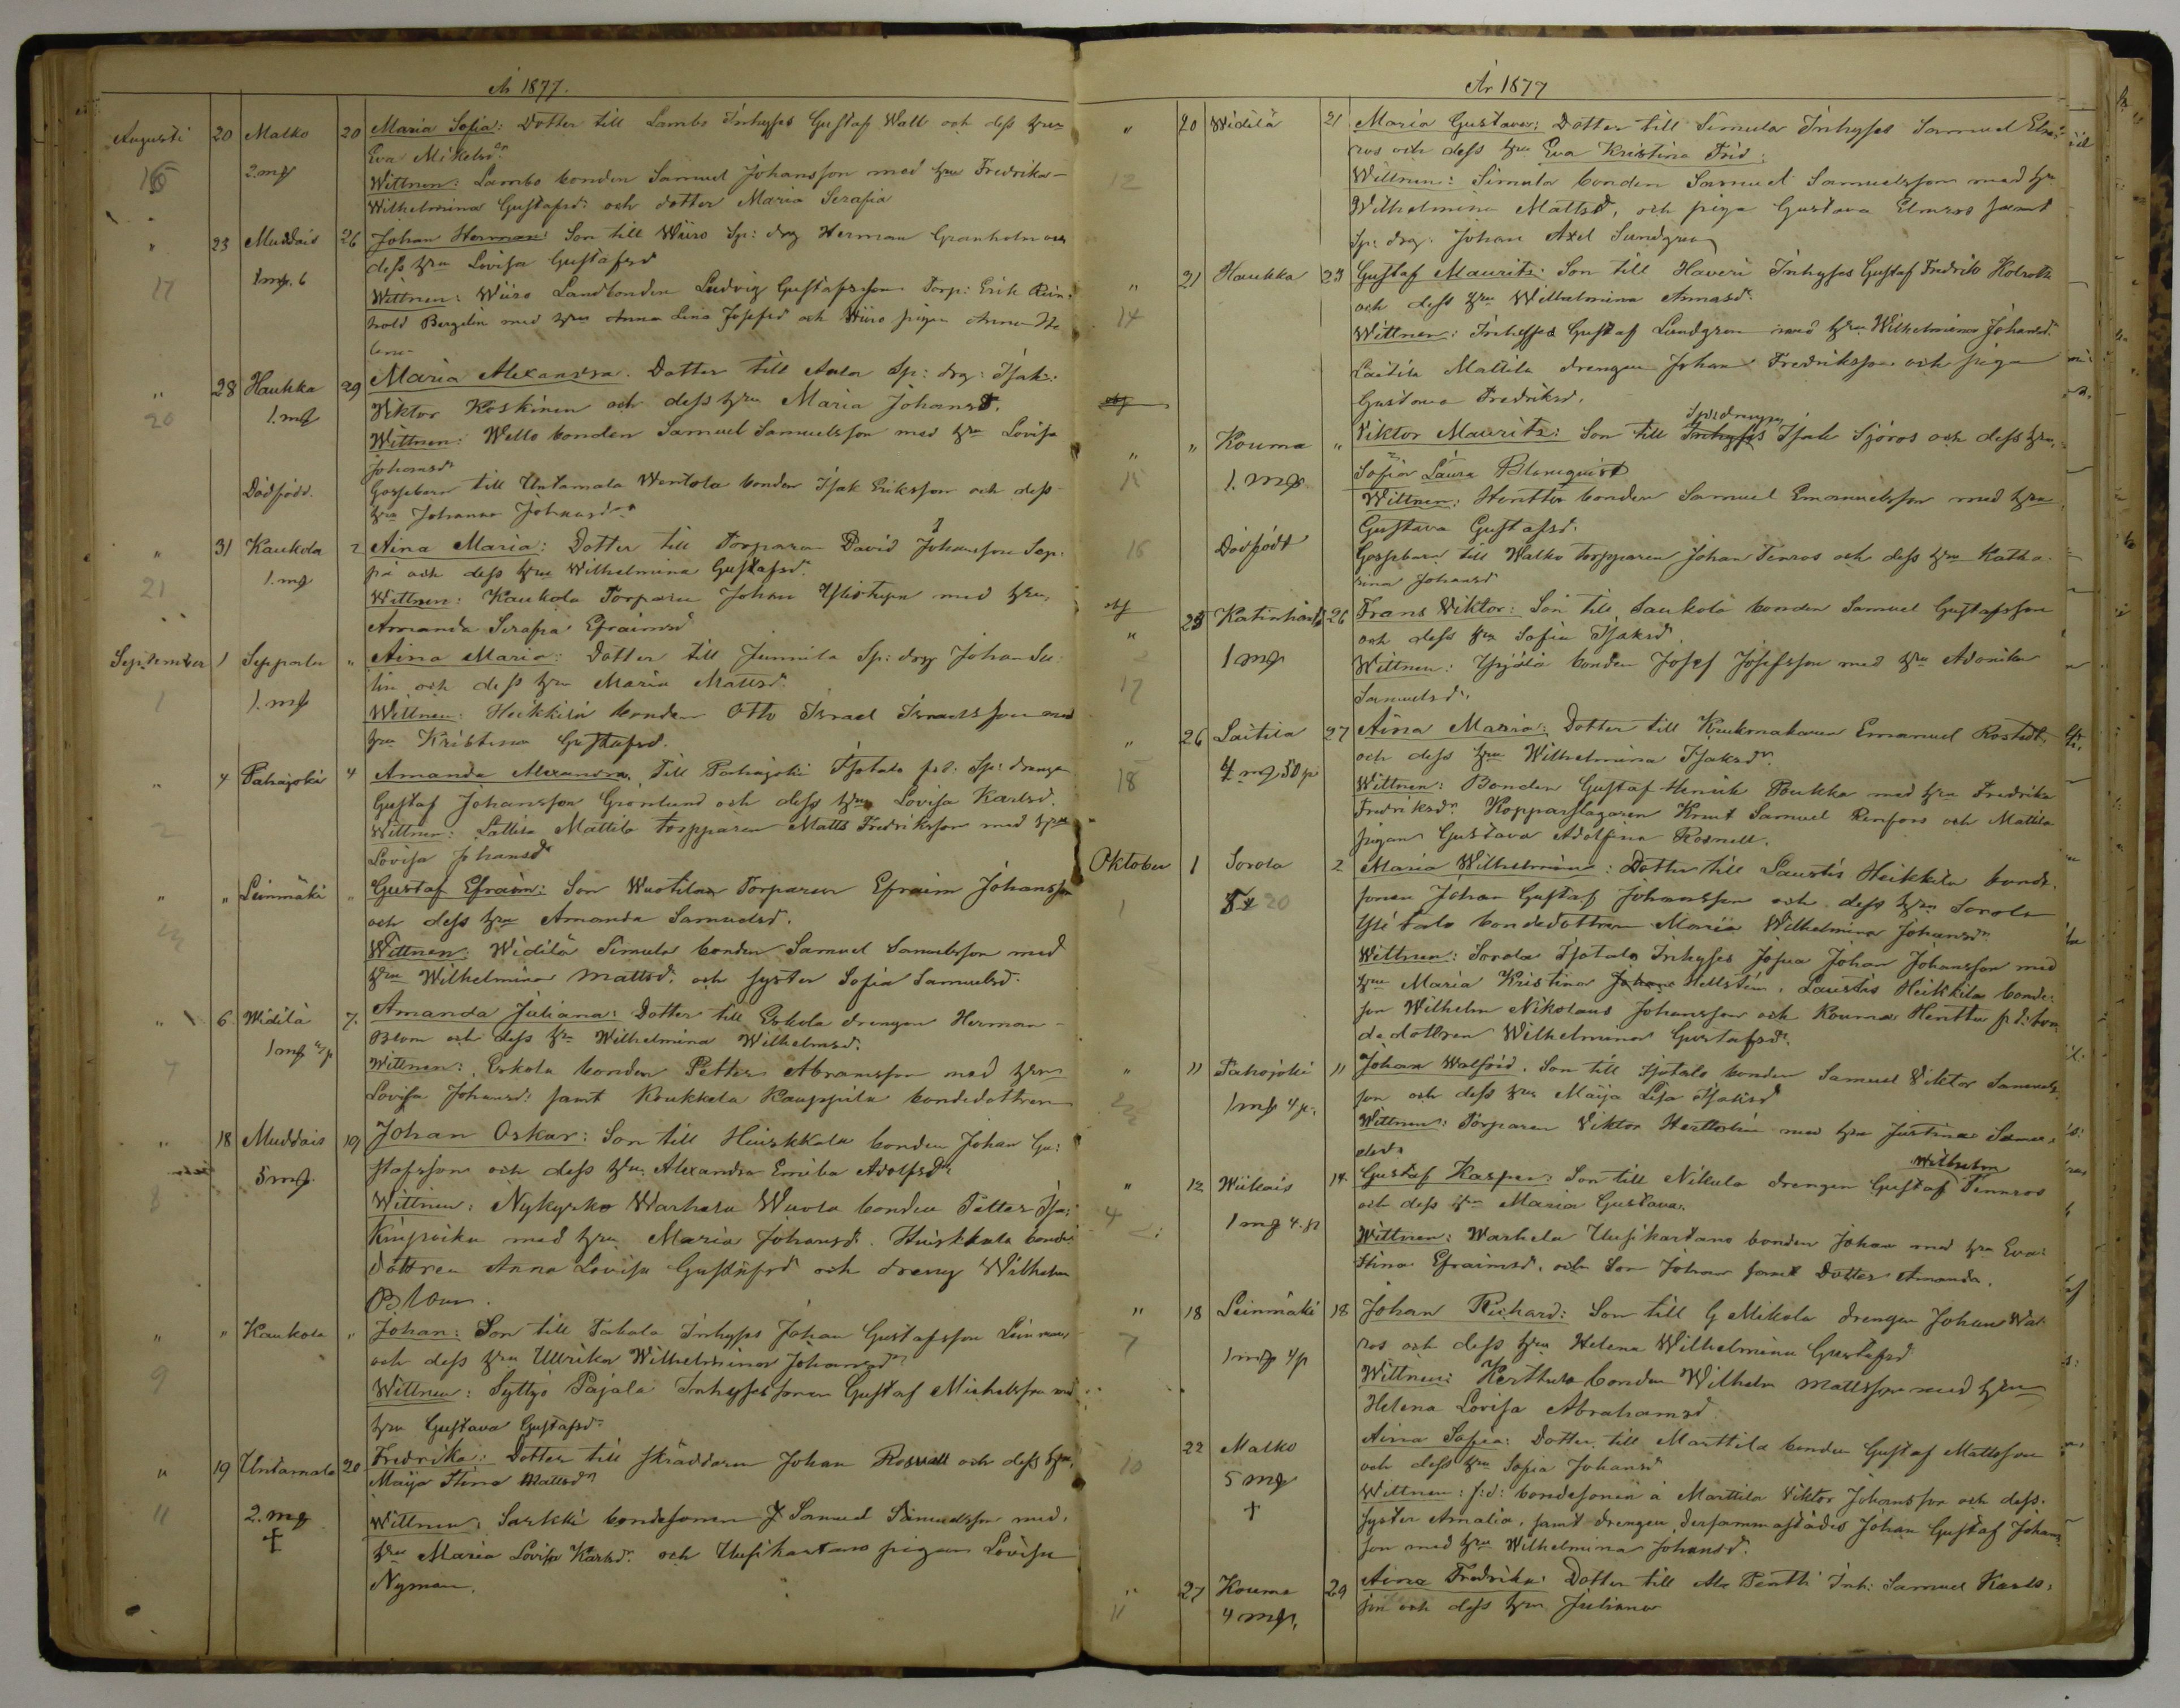 År 1877.
Augusti 20 Malko 20 Maria Sofia: Dotter till Lambo Inhyses Gustaf Wall och dess hru
Eva Mikelsdr
16 2.mg Wittnen: Lambo bonden Samuel Johansson med hru Fredrika
Wilhelmina Gustafsd: och dotter Maria Serafia
" 23 Muddais 26 Johan Herman: Son till Wiiro Sp: drg Herman Granholm och
dess hru Lovisa Gustafsd
17 1mg. 6 Wittnen: Wiiro Landbonden Ludvig Gustafsson Torp: Erik Rein-
hold Bergelin med hru Anna Lena Josefsd och Wiiro pigan Anna He
lena
" 28 Haukka 29 Maria Alexandra. Dotter till Anla Sp: drg: Isak
20 1.mg Viktor Koskinen och dess hru Maria Johansd.
Wittnen: Wello bonden Samuel Samuelsson med hru Lovisa
Johansdr
Dödfödd. Gossebarn till Untamala Wentola bonden Isak Eriksson och dess
hru Johanna Johansdr
" 31 Kaukola 2 Aina Maria: Dotter till Torparen David Johansson Sep:
pä och dess hru Wilhelmina Gustafsd.
21 1.mg Wittnen: Kaukola Torparen Johan Ylistupa med hru,
Amanda Serafia Efraimsd
September 1 Sepporla " Aina Maria: Dotter till Junnila Sp: drg Johan Su
lin och dess hru Maria Mattsd.
1 1.mg Wittnen: Heikkilä bonden Otto Israel Israelsson med
hru Kristina Gustafsd.
" 4 Pahajoki 4 Amanda Alexandra. till Pahajoki Isotalo f.d: Sp: drengen
Gustaf Johansson Grönlund och dess hru Lovisa Karlsd.
2 Wittnen: Mattila torpparen Matts Fredriksson med hru
Lovisa Johansd
" " Leinmäki " Gustaf Efraim: Son Wuotilan Torparen Efraim Johansson
och dess hru Amanda Samuelsd.
Wittnen: Widilä Simula bonden Samuel Samuelsson med
hru Wilhelmina Mattsd. och syster Sofia Samuelsd.
" 6 Widilä 7. Amanda Juliana: Dotter till Eskola drengen Herman
1mg 4p Blom och dess hru Wilhelmina Wilhelmsd.
4 Wittnen: Eskola bonden Petter Abramsson med hru
Lovisa Johansd: samt Koukkela Kauppila bondedottren
" 18 Muddais 19 Johan Oskar: Son till Huiskkala bonden Johan Gu:
5mg. stafsson och dess hru Alexandra Emilia Adolfsd.
8 Wittnen: Nykyrko Warhela Wuola bonden Petter Isa:
med hru Maria Johansd. Huiskkala bonde
dottren Anna Lovisa Gustafsd och dreng Wilhelm
Blom.
" " Kaukola " Johan: Son till Tabala Inhyses Johan Gustafsson
och dess hru Ullrika Wilhelmina Johansd
9 Wittnen: Syttyö Pajala Inhysessonen Gustaf Michelsson med
hru Gustava Gustafsd
" 19 Untamala 20 Fredrika: Dotter till skräddaren Johan Rosvall och dess hru,
Maija Stina Mattsd
11 2.mg Wittnen: Sarkki bondesonen J Samuel Samuelsson med,
† hru Maria Lovisa Karlsd. och Uusikartano pigan Lovisa
Nyman.
År 1877
" 20 Widilä 21 Maria Gustava: Dotter till Simula Inhyses Samuel Elm:
ros och dess hru Eva Kristina Frid:
12 Wittnen: Simula bonden Samuel Samuelsson med hr
Wilhelmina Mattsd, och piga Gustava Elmros samt
Sp: drg. Johan Axel Sundgren
" 21 Haukka 23 Gustaf Maurits: Son till Haveri Inhyses Gustaf Fredrik
och dess hru Wilhelmina Annasd.
14 Wittnen: Inhyses Gustaf Lundgren med hru Wilhelmina Johansd.
Laitila Mattila drengen Johan Fredriksson och piga
Gustava Fredriksd.
" " Kouma " Viktor Maurits: Son till Sp:drengen Isak Sjöros och dess hru,
Sofia Laura Blomquist
15 1.mg Wittnen: Hentto bonden Samuel Emanuelsson med hru
Gustava Gustafsd.
16 Dödfödt Gossebarn till Walko Torpparen Johan Tenros och dess hru Katha
rina Johansd
obs " 25 Katinhänt 26 Frans Viktor: Son till Saukola bonden Samuel Gustafsson
och dess hru Sofia Isaksd
17 1mg Wittnen: bonden Josef Josefsson med hru Adonika
Samuelsd.
" 26 Laitila 27 Aina Maria: Dotter till Krukmakaren Emanuel Rostedt
och dess hru Wilhelmina Isaksdr.
18 4 mg 50 p Wittnen: Bonden Gustaf Henrik Pukka med hru Fredrika
Fredriksdr. Kopparslagaren Knut Samuel Renfors och Mattila
pigan Gustava Adolfina Rosnell.
Oktober 1 Sorola 2 Maria Wilhelmina: Dotter till Laustis Heikkilä bonde
sonen Johan Gustaf Johansson och dess hru Sorola
1 20 Yli talo bondedottren Maria Wilhelmina Johansdr
Wittnen: Sorola Isotalo Inhyses Josua Johan Johansson med
hru Maria Kristina Hellstén, Laustis Heikkilä bonde:
son Wilhelm Nikolaus Johansson och Kouma Hentto f.d: bon
dedottren Wilhelmina Gustafsd.
" 11 Pahojoki 11 Johan Walfrid. Son till Isotalo bonden Samuel Viktor Samuels
son och dess hru Maija Lisa Isaksd
1mg 4p. Wittnen: Torparen Viktor Herttolin med hru Justina Samu:
elsdr
" 12 Wiikais 14 Gustaf Kasper: Son till Nikula drengen Gustaf Wilhelm Tennros
och dess hru Maria Gustava.
4 1 mg 4.p Wittnen: Warhela Uusikartano bonden Johan med hru Eva
Stina Efraimsd. och Son Johan samt Dotter Amanda.
" 18 Leinmäki 18 Johan Richard: Son till G Mikola drengen Johan Wal
ros och dess hru Helena Wilhelmina Gustafsd
7 1mg 4p Wittnen: Kerttula bonden Wilhelm Mattsson med hru
Helena Lovisa Abrahamsd
22 Malko Aina Sofia: Dotter till Marttila bonden Gustaf Mattsson
10 och dess hru Sofia Johansd
5 mg Wittnen: f:d: bondesonen å Marttila Viktor Johansson och dess
† syster Amalia, samt drengen dersammastädes Johan Gustaf Johans
son med hru Wilhelmina Johansd.
" 27 Kouma 29 Aina Fredrika: Dotter till Ala Pentti Inh: Samuel Karls:
11 4mg, son och dess hru Juliana